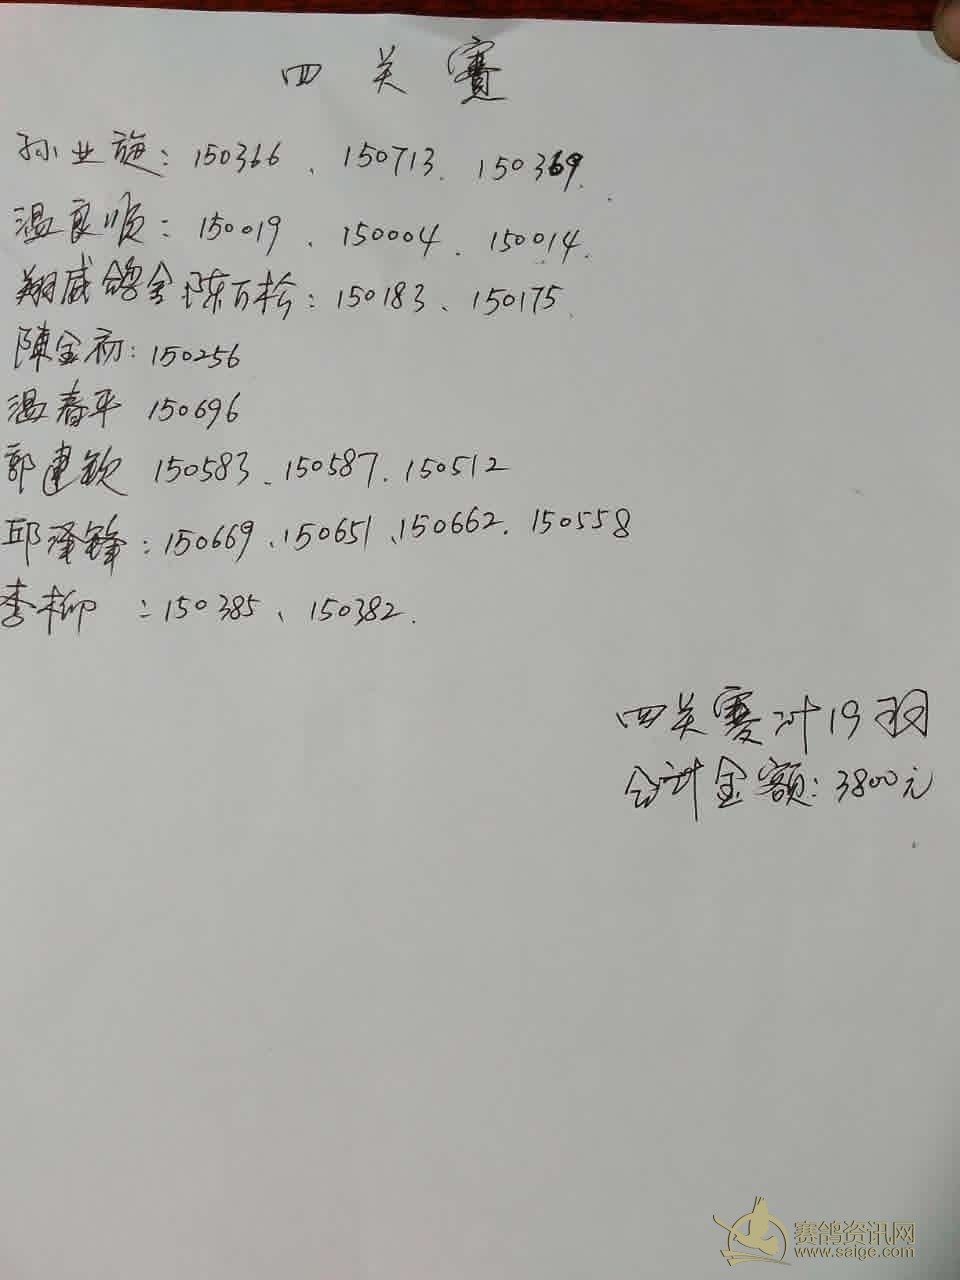 四关赛
孙业施：150366、150713、150369.
温良顺：150019、150004、150014.
翔威鸽舍陈万松：150183、150175.
陳金初：150256
温春平 150696
郭建钦 150583、150587.150512
邱泽锋：150669、150651、150662.150558
李柳：150385、150382.
四关赛计19羽
合计金额：3800元
赛鸽资讯网
www.saigc.com